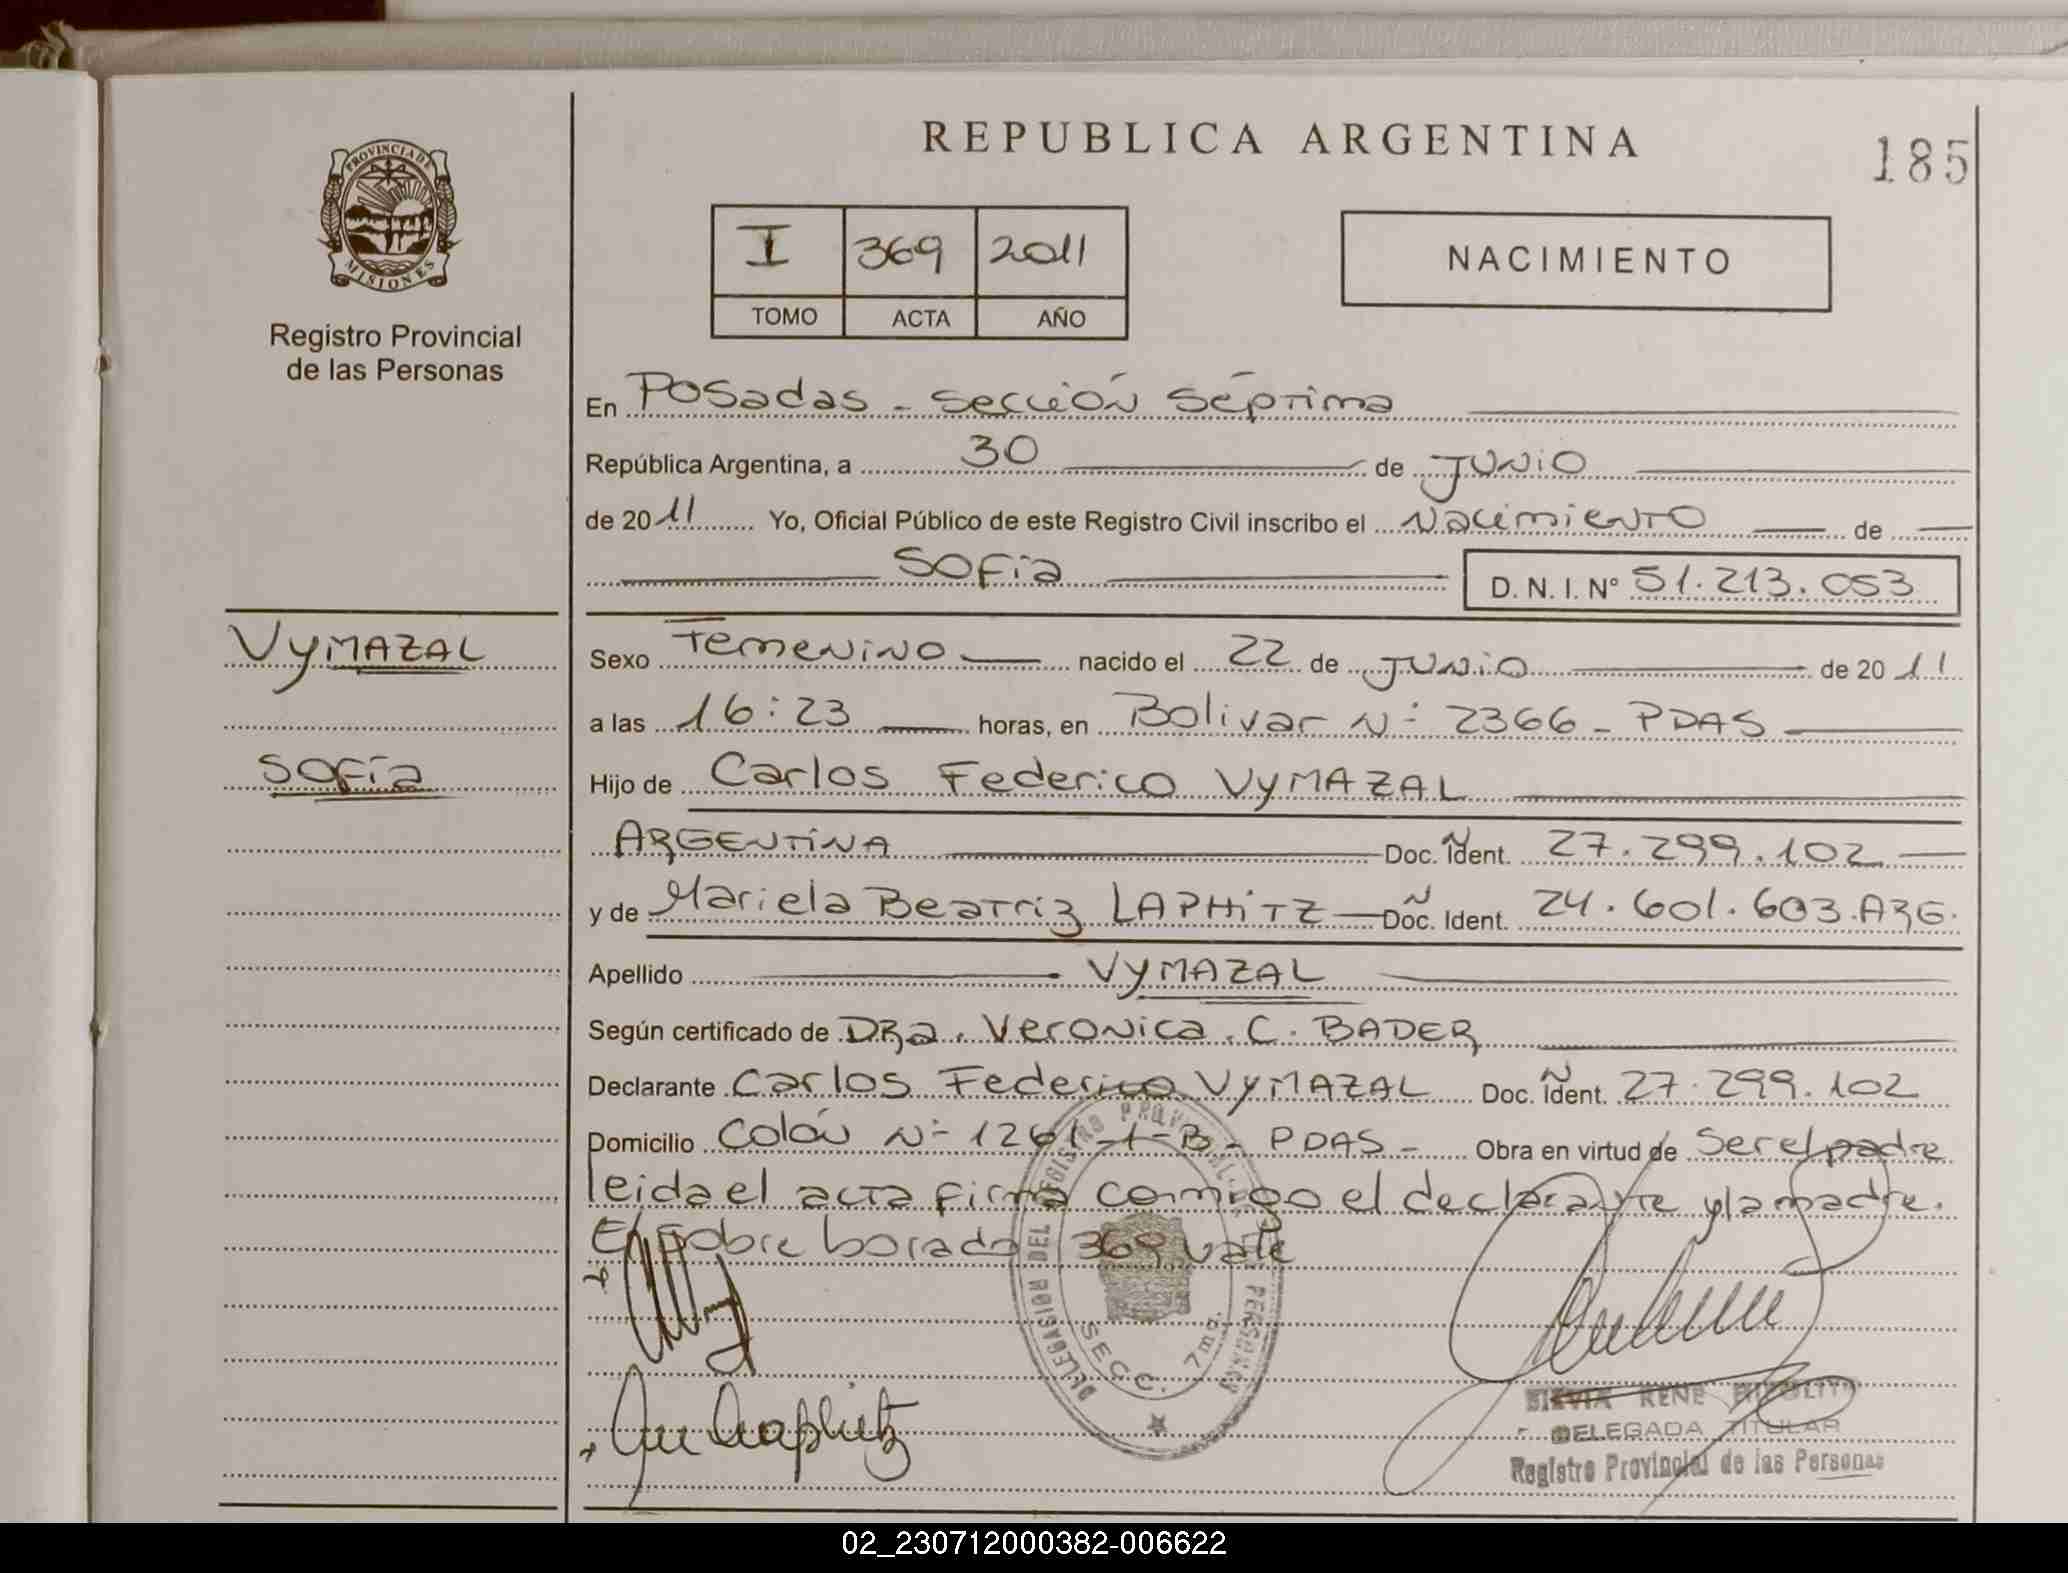 REPUBLICA ARGENTINA
185
PROVINCIA DE
MISIONES
Registro Provincial
de las Personas
I 369 2011
TOMO ACTA AÑO
NACIMIENTO
En Posadas - sección séptima
República Argentina, a 30 de Junio
de 2011 Yo, Oficial Público de este Registro Civil inscribo el Nacimiento de
Sofía
D. N. I. Nº 51.213.053
VYMAZAL
Sofía
Sexo Femenino nacido el 22 de Junio de 2011
a las 16:23 horas, en Bolivar Nº 2366 - PDAS
Hijo de Carlos Federico VYMAZAL
ARGENTINA Doc. Ident. 27.299.102
y de Mariela Beatriz LAPHITZ Doc. Ident. 24.601.603.ARG.
Apellido VYMAZAL
Según certificado de DRa. Veronica. C. BADER
Declarante Carlos Federico VYMAZAL Doc. Ident. 27.299.102
Domicilio Colón Nº 1261-1-B- PDAS- Obra en virtud de Ser el padre
leida el acta firma conmigo el declarante y la madre.
El sobre borado 369 vale
DELEGACION DEL REGISTRO PROVINCIAL DE LAS PERSONAS
SECC. 7ma.
SILVIA RENE
DELEGADA TITULAR
Registro Provincial de las Personas
02_230712000382-006622